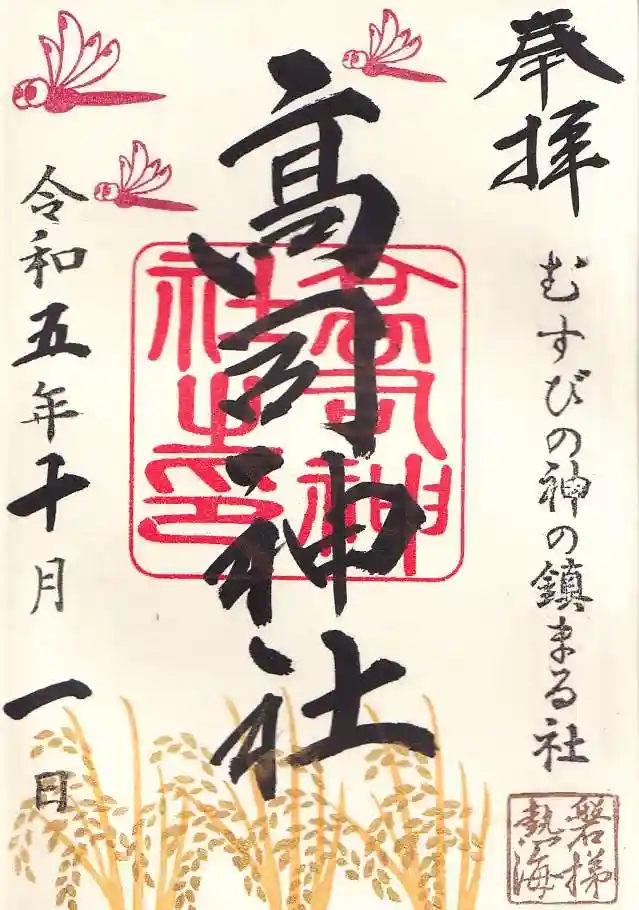 奉拝
むすびの神の鎮まる社
磐梯
熱海
高司神社
高司神
社之印
令和五年十月一日